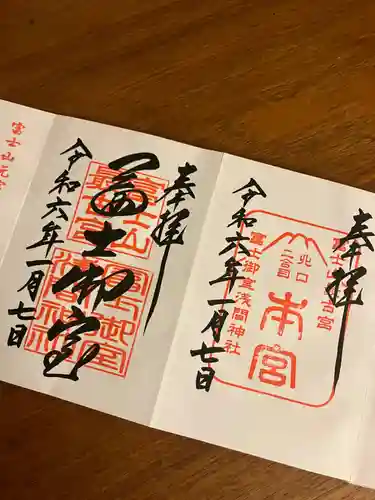 奉拝
富士山
最古宮
富士御室
浅間神社
冨士御室
令和六年一月七日
奉拝
富士山最古宮
北口
二合目
本宮
冨士御室浅間神社
令和六年一月七日